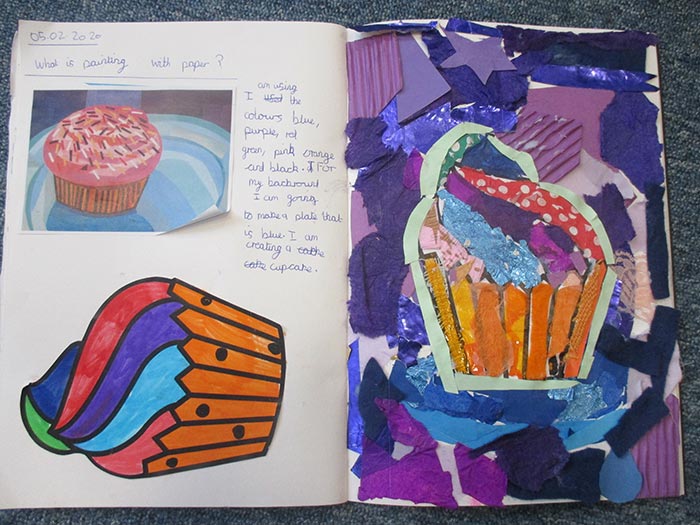 05.02.2020
What is painting with paper?
am using
I used the
colours blue,
purple, red
green, pink orange
and black. I For
my backround
I am going
to make a plate that
is blue. I am
creating a
cupcake.